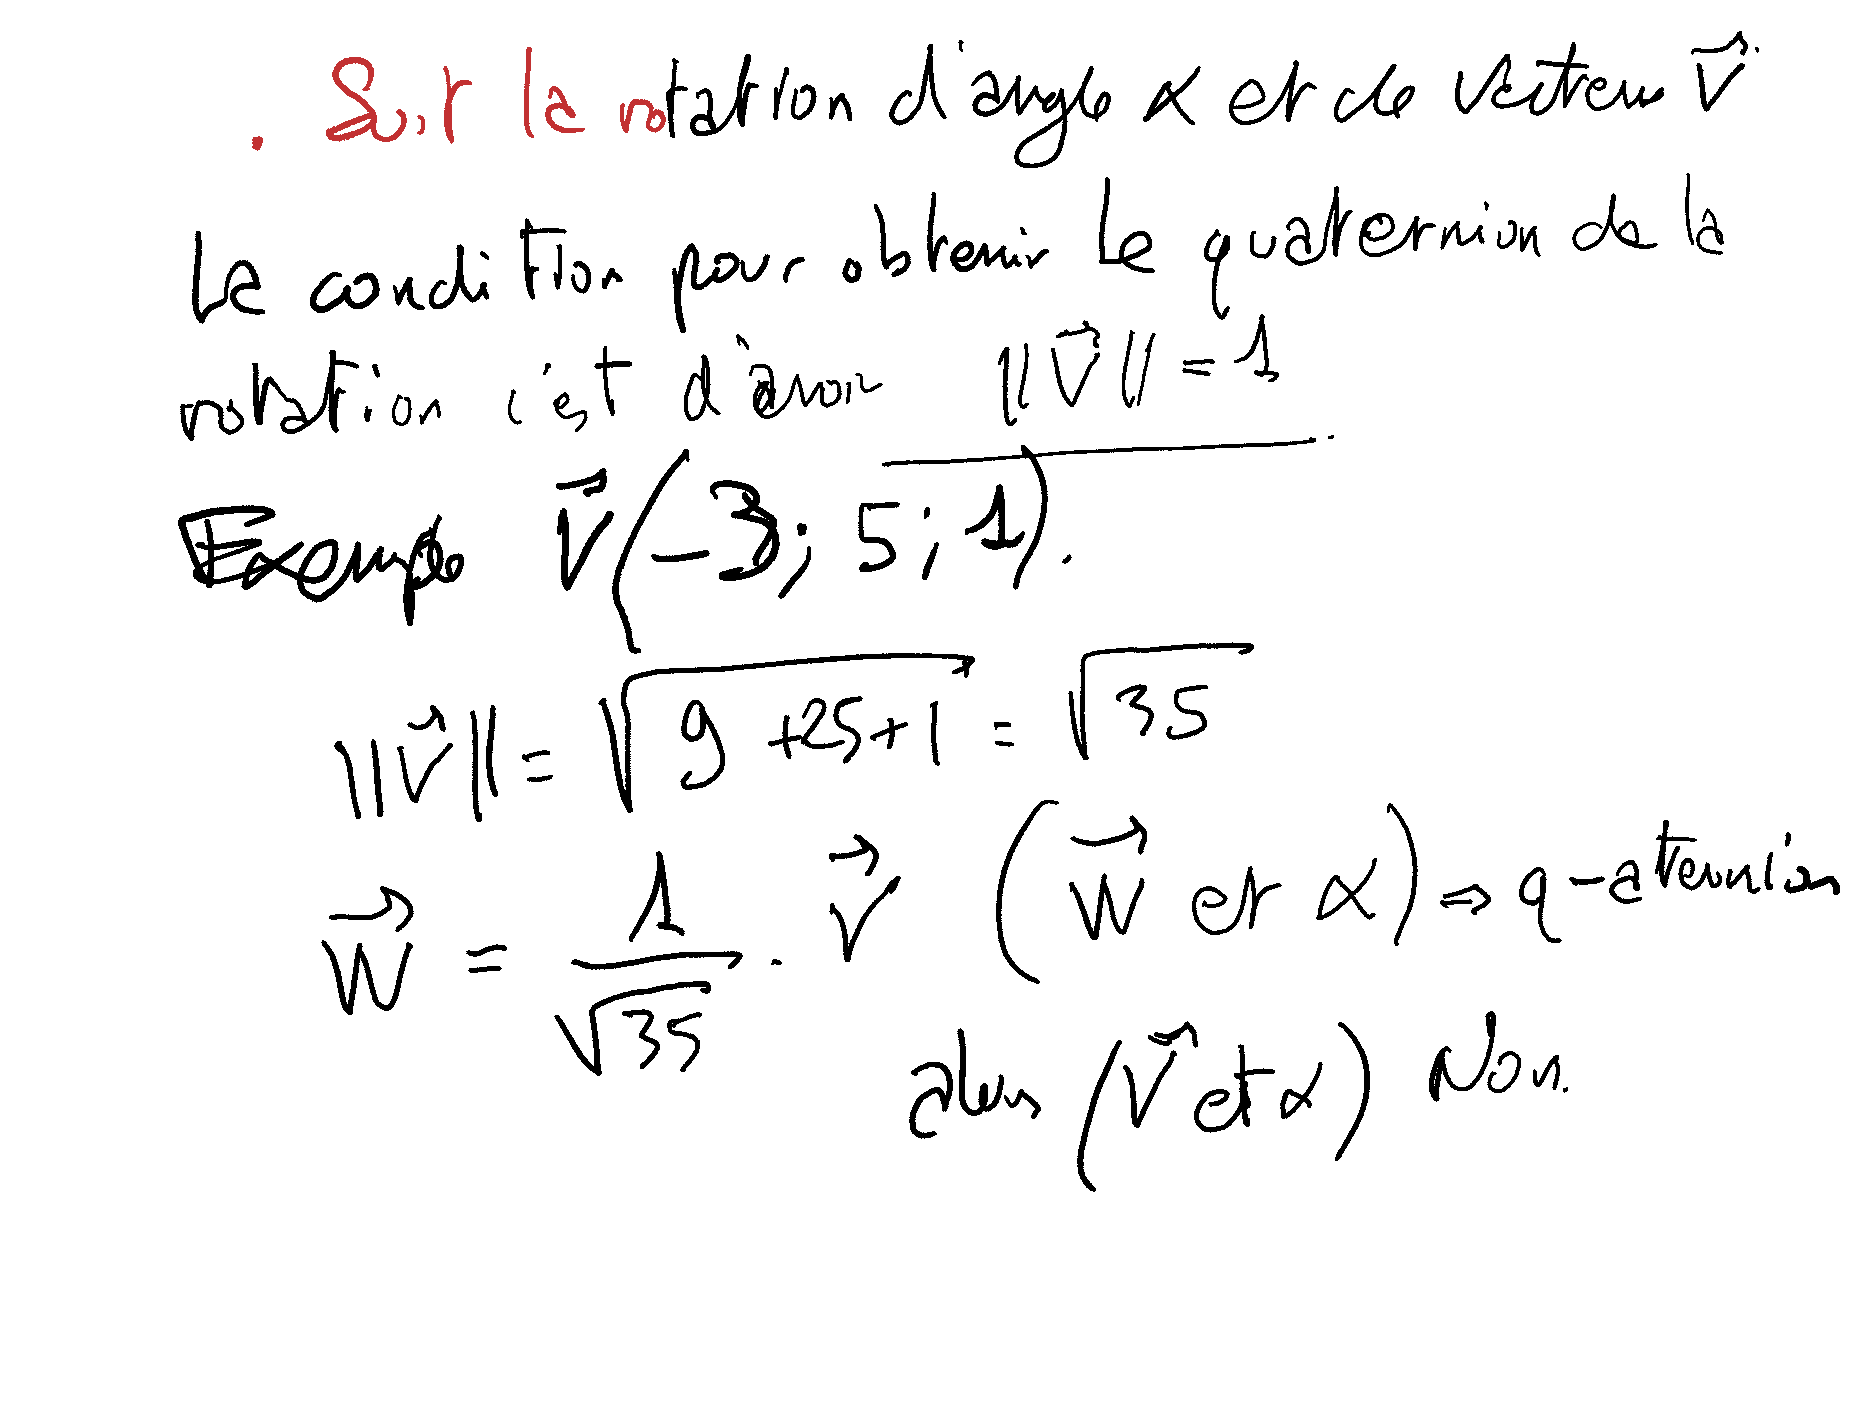 . Soit la rotation d'angle α et de vecteur V⃗.
La condition pour obtenir le quaternion de la
rotation c'est d'avoir ||V⃗|| = 1
Exemple V⃗(-3; 5; 1).
||V⃗|| = √(9+25+1) = √35
W⃗ = 1/√35 . V⃗ (W⃗ et α) ⇒ q-aternion
alors (V⃗ et α) Non.